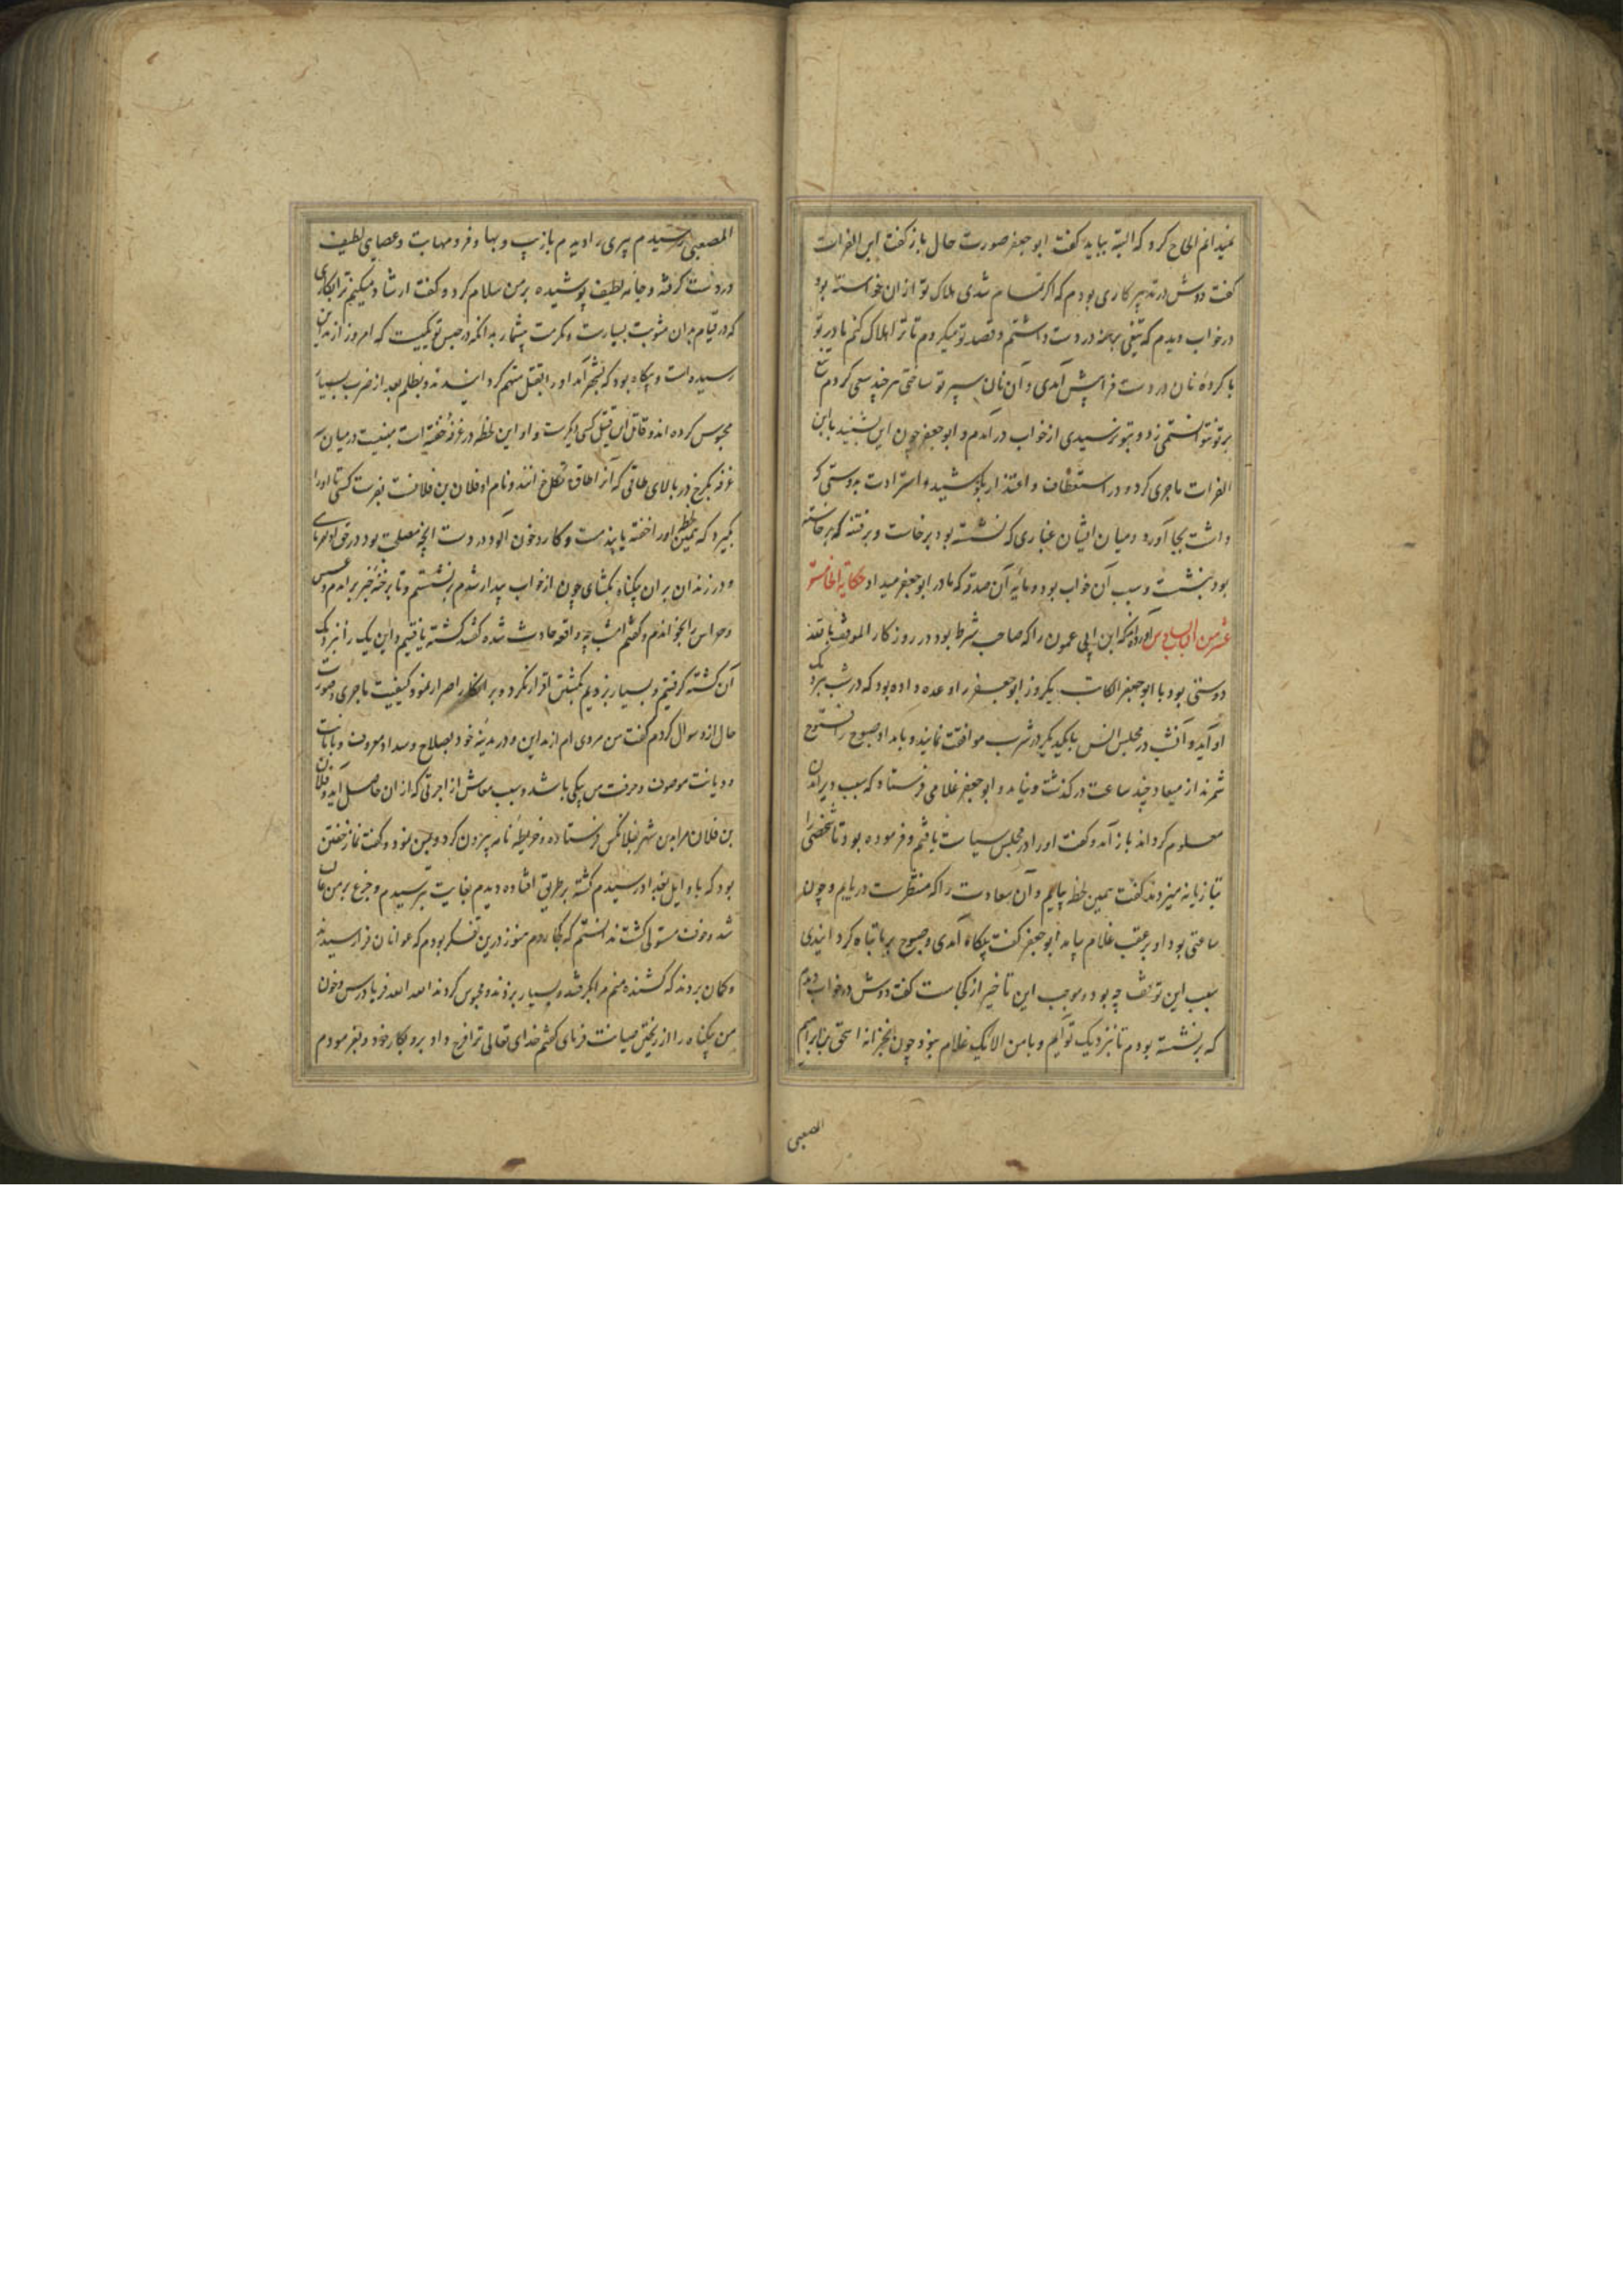 نمیدانم الحاح کرد که البته بیاید گفت ابوجعفر صورت حال باز گفت ابن الفرات
گفت دوش در تدبیر کاری بودم که اگر تمام شدی هلاک تو از آن خواسته بود
در خواب دیدم که تیغی برهنه در دست داشتم و قصد تو میکردم تا ترا هلاک کنم مادر تو
با کرده نان در دست فراپیش آمدی و آن نان سپر تو ساختی هر چند سعی کردم تیغ
بر تو نتوانستمی زد و بتو نرسیدی از خواب درآمدم و ابوجعفر چون این بشنید با ابن
الفرات ماجری کرد و در استعطاف و اعتذار بکوشید و استرادت بدوستی که
داشت بجا آورد و میان ایشان غباری که نشسته بود برخاست و برفتنه که برخاسته
بود بنشست و سبب آن خواب بود و مایه آن صدقه که مادر ابوجعفر میداد حکایة الخامسة
عشر من الباب السادس آورده‌اند که ابن ابی عمون را که صاحب شرط بود در روزکار الموفق بالله
دوستی بود با ابوجعفر الکاتب یکروز ابوجعفر را وعده داده بود که در شب نزدیک
او آید و آنشب در مجلس انس با یکدیگر در شرب موافقت نمایند و بامداد صبوح را
شمرند از میعاد چند ساعت درگذشت و نیامد و ابوجعفر غلامی فرستاد که سبب دیر آمدن
معلوم کرداند باز آمد و گفت او را در مجلس سیاست یافتم و فرموده بود تا شخصی را
بتازیانه میزدند گفت همین لحظه بیایم و آن سعادت را که منتظرست دریابم و چون
ساعتی بود او بر عقب غلام بیامد ابوجعفر گفت بیگاه آمدی و صبوح بر ما تباه کردانیدی
سبب این توقف چه بود و موجب این تاخیر از کجاست گفت دوش در خواب دیدم
که برنشسته بودم تا نزدیک تو آیم و با من الا یک غلام نبود چون بخزانه اسحق بن ابراهیم
المصعبی
المصعبی رسیدم پیری را دیدم با زیب و بها و فر و مهابت و عصای لطیف
در دست گرفته و جامه لطیف پوشیده بر من سلام کرد و گفت ارشاد میکنم ترا بکاری
که در قیام بدان مثوبت بسیارست و مکرمت بیشمار بدانکه در حبس تو یکیست که امروز از مداین
رسیده است و بیگاه بود که بشهر آمد او را بقتل متهم کردانیدند و بظلم بعد از ضرب بسیار
محبوس کرده‌اند و قاتل آن قتیل کسی دیگرست و او این لحظه در غرفه خفته است میان سه
غرفه بکرخ در بالای طاقی که آنرا طاق خوانند و نام او فلان بن فلانست بفرست کسی تا او را
بگیرد که همین لحظه او را خفته یابند مست و کارد خون آلود در دست آنچه مصلحت بود در حق او فرمای
و در زندان بران بیگناه بگشای چون از خواب بیدار شدم برنشستم و تا برخنه خبر براندم و عسس
و حراس را بخواندم و گفتم امشب چه واقعه حادث شده گفتند کشته یافتیم و این یک را نزدیک
آن کشته گرفتیم و بسیار بزدیم بکشتن اقرار نکرد و بر انکار اصرار نمود کیفیت ماجری و صورت
حال ازو سوال کردم گفت من مردی‌ام از مداین و در مدینه خود بصلاح و سداد معروف و بامانت
و دیانت موصوف و حرفت من پیکی باشد و سبب معاش از اجرتی که از آن حاصل آید و فلان
بن فلان مرا بدین شهر بفلانکس فرستاده و خریطه نامه بیرون کرد و بمن نمود و گفت نماز خفتن
بود که باوایل بغداد رسیدم کشته بر طریق افتاده دیدم بغایت بترسیدم و جزع بر من غالب
شد و خوف مستولی گشت ندانستم که کجا روم هنوز درین تفکر بودم که عوانان فرارسیدند
و گمان بردند که کشنده منم مرا بگرفتند و بسیار بزدند و محبوس کردند الله الله فریاد رس و خون
من بیگناه را از ریختن صیانت فرمای گفتم خدای تعالی ترا فرج داد برو بکار خود و بفرمودم